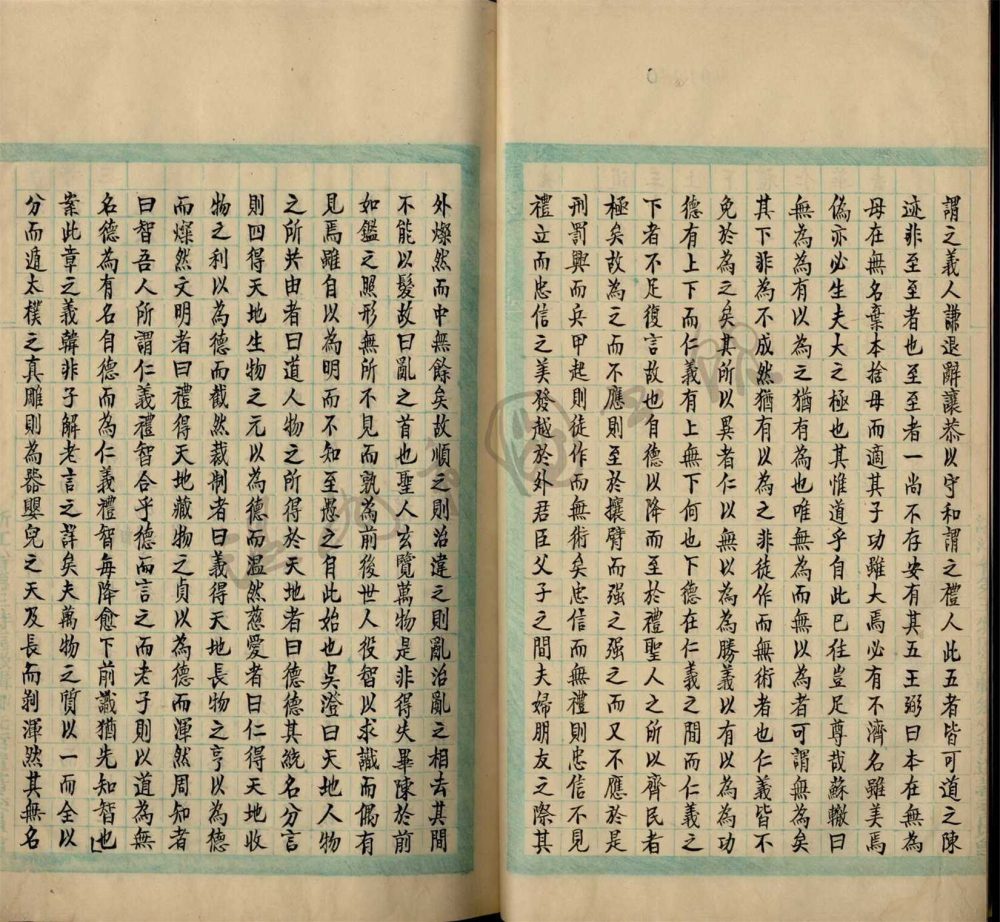 謂之義人謙退辭讓恭以守和謂之禮人此五者皆可道之陳
迹非至至者也至至者一尚不存安有其五王弼曰本在無為
母在無名棄本捨母而適其子功雖大焉必有不濟名雖美焉
偽亦必生夫大之極也其惟道乎自此已往豈足尊哉蘇轍曰
無為為有以為之猶有為也唯無為而無以為者可謂無為矣
其下非為不成然猶有以為之非徒作而無術者也仁義皆不
免於為之矣其所以異者仁以無以為為勝義以有以為為功
德有上下而仁義有上無下何也下德在仁義之間而仁義之
下者不足復言故也自德以降而至於禮聖人之所以齊民者
極矣故為之而不應則至於攘臂而强之强之而又不應於是
刑罰興而兵甲起則徒作而無術矣忠信而無禮則忠信不見
禮立而忠信之美發越於外君臣父子之間夫婦朋友之際其
外燦然而中無餘矣故順之則治違之則亂治亂之相去其間
不能以髮故曰亂之首也聖人玄覽萬物是非得失畢陳於前
如鑑之照形無所不見而孰為前後世人役智以求識而偶有
見焉雖自以為明而不知至愚之自此始也吳澄曰天地人物
之所共由者曰道人物之所得於天地者曰德德其統名分言
則四得天地生物之元以為德而温然慈愛者曰仁得天地收
物之利以為德而截然裁制者曰義得天地長物之亨以為德
而燦然文明者曰禮得天地藏物之貞以為德而渾然周知者
曰智吾人所謂仁義禮智合乎德而言之而老子則以道為無
名德為有名自德而為仁義禮智每降愈下前識猶先知智也
案此章之義韓非子解老言之詳矣夫萬物之質以一而全以
分而遁太樸之真雕則為器嬰兒之天及長而剥渾然其無名